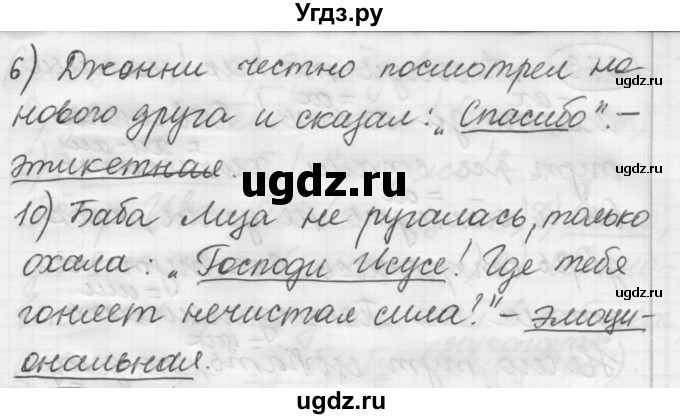 Угдз.ру
6) Джонни честно посмотрел на
нового друга и сказал: „Спасибо". –
этикетная.
ugdz.ru
10) Баба Лиза не ругалась, только
охала: „Господи Исусе! Где тебя
гоняет нечистая сила?" – эмоци-
ональная.
©ugdz.ru